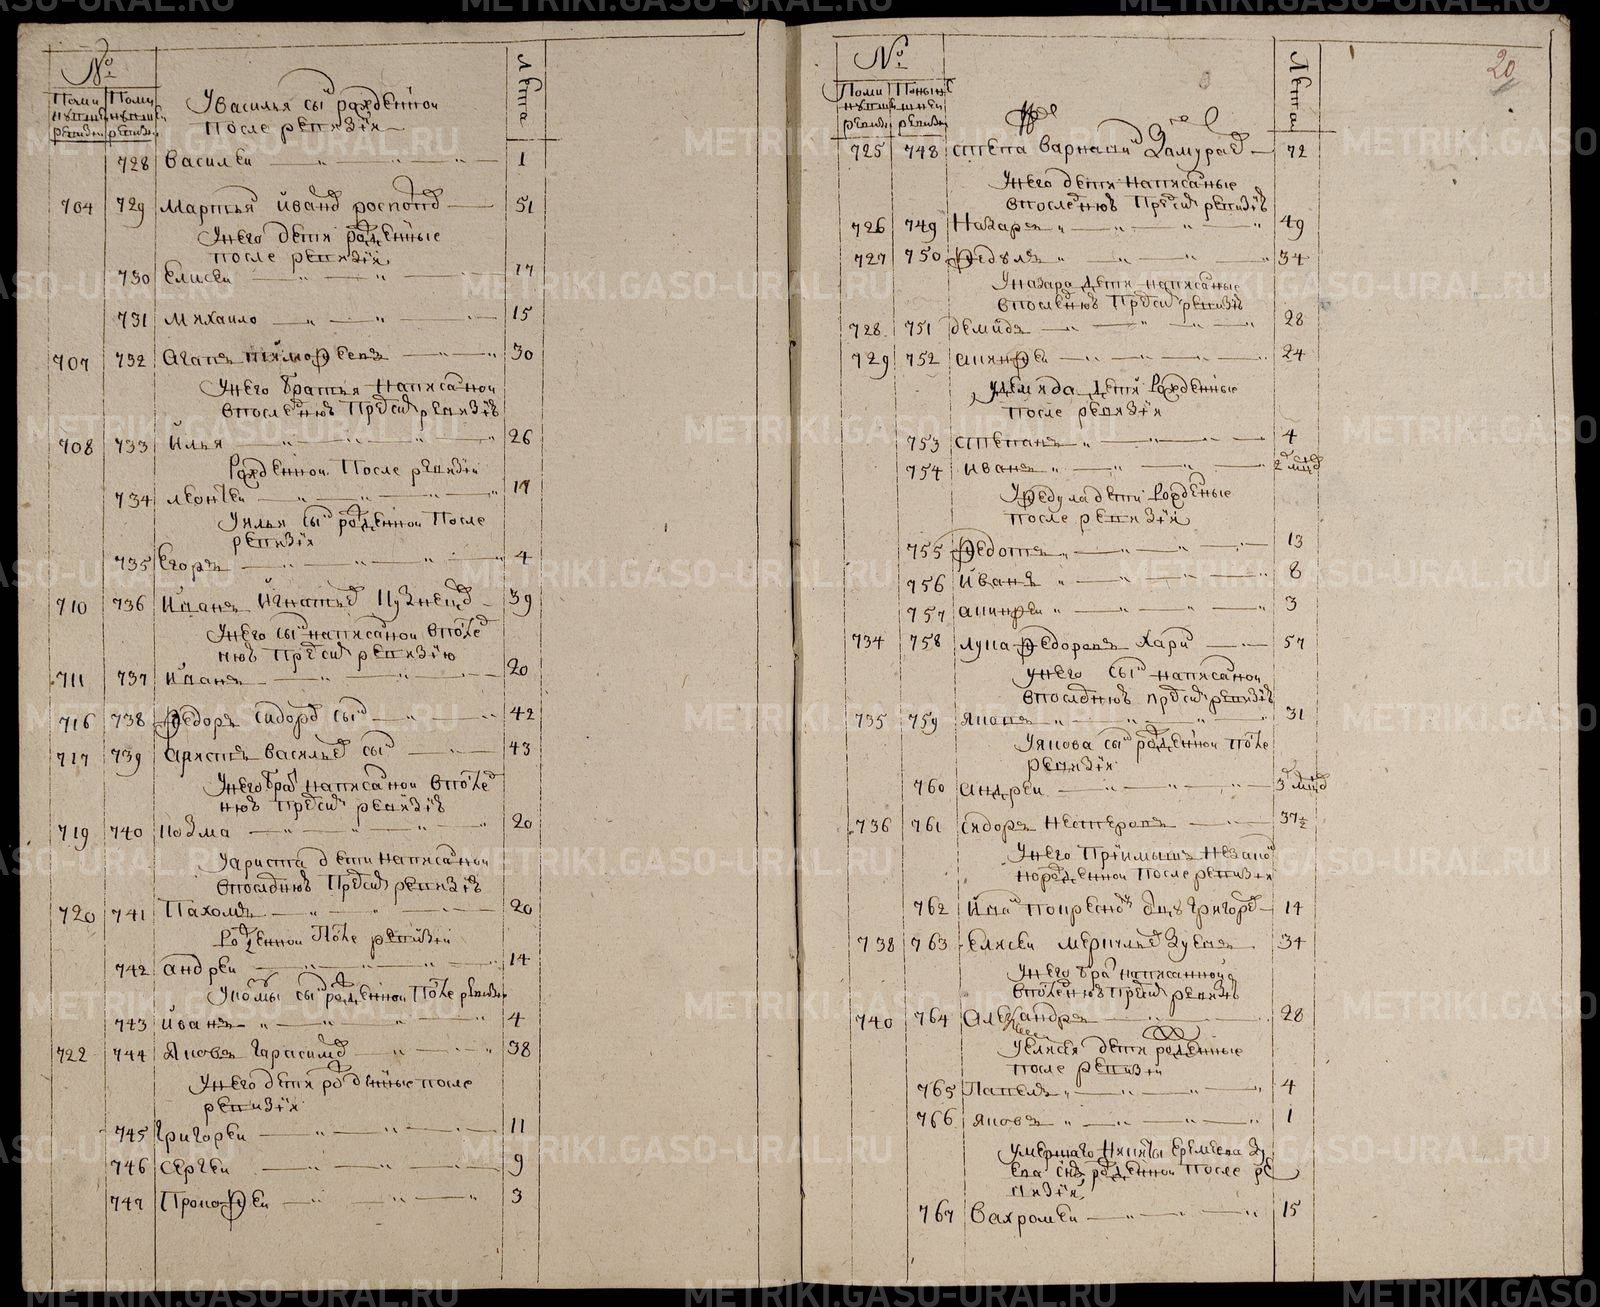 №
Лета
У василья сын рожденной
после ревизiи
728 Василеи 1
704 729 Мартын иванов роспопов 51
У него дети рожденные
после ревизiи
730 Елисеи 17
731 Михаило 15
707 732 Агапъ тимофеевъ 30
У него братья написаной
в последнюю пред сим ревизiю
708 733 Илья 26
Рожденной после ревизiи
734 леонтеи 17
У ильи сын рожденной после
ревизiи
735 Егоръ 4
710 736 Иванъ Игнатьев Кузнецов 39
У него сын написаной в послед
нюю пред сим ревизiю
711 737 Иванъ 20
716 738 Федоръ сидоров сын 42
717 739 Аристъ васильев сын 43
У него брат написаной в послед
нюю пред сим ревизiю
719 740 Козма 20
У ариста дети написаной
в последнюю пред сим ревизiю
720 741 Пахомъ 20
Рожденной после ревизiи
742 андреи 14
сын рожденной после ревизiи
743 Иванъ 4
722 744 Яковъ Гарасимов 38
У него дети рожденные после
ревизiи
745 Григореи 11
746 Сергеи 9
747 Прокофеи 3
№
Лета
20
725 748 степа варна Замураев 72
У него дети написаные
в последнюю пред сим ревизiю
726 749 Назаръ 49
727 750 Федулъ 34
У назара дети написаные
в последнюю пред сим ревизiю
728 751 демидъ 28
729 752 анинфеи 24
У демида дети рожденные
после ревизiи
753 степанъ 4
754 иванъ 2 мцов
У федула дети рожденые
после ревизiи
755 Федотъ 13
756 Иванъ 8
757 анинфеи 3
734 758 лупа федоровъ Хари 57
У него сын написаной
в последнюю пред сим ревизiю
735 759 Яковъ 31
У якова сын рожденной после
ревизiи
760 Андреи 3 мцов
736 761 сидоръ Нестеровъ 37½
У него прiимышъ незакон
норожденной после ревизiи
762 Иван по крестном отцу Григорев 14
738 763 Елисеи меркульев Зуевъ 34
У него брат написанной
в последнюю пред сим ревизiю
740 764 Александръ 28
У елисея дети рожденные
после ревизiи
765 Павелъ 4
766 яковъ 1
Умершаго Никиты Еремеева Зу
ева снъ рожденной после ре
визiи
767 Вахромеи 15